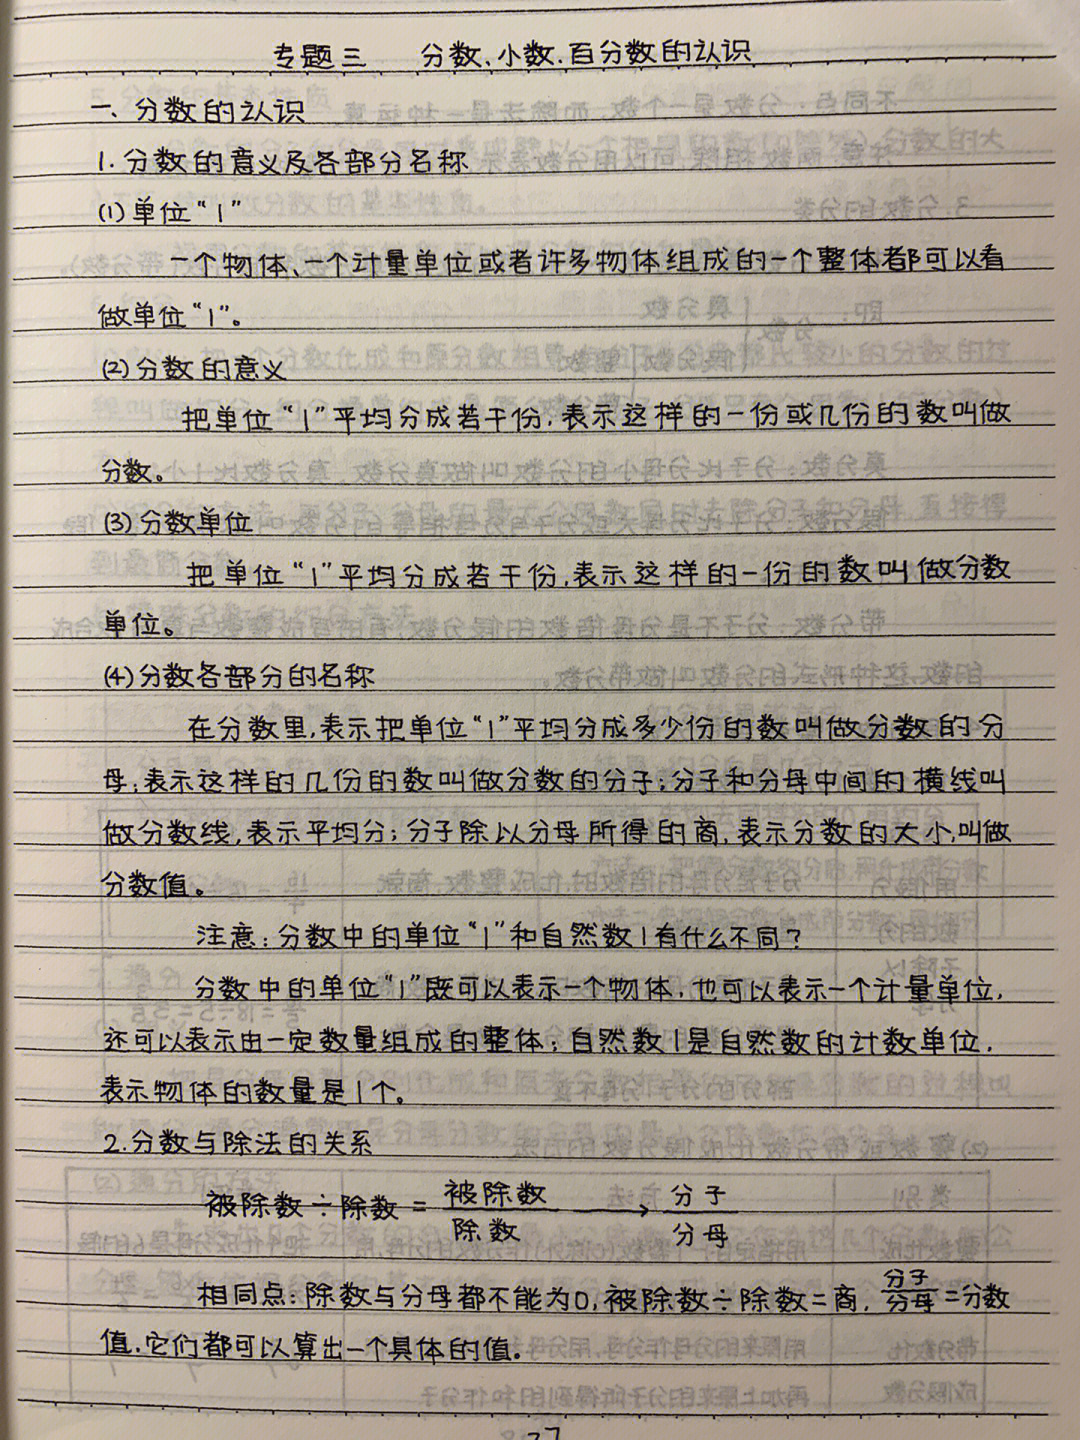 专题三　　分数、小数、百分数的认识
一、分数的认识
1.分数的意义及各部分名称
(1)单位“1”
一个物体、一个计量单位或者许多物体组成的一个整体都可以看
做单位“1”。
(2)分数的意义
把单位“1”平均分成若干份,表示这样的一份或几份的数叫做
分数。
(3)分数单位
把单位“1”平均分成若干份,表示这样的一份的数叫做分数
单位。
(4)分数各部分的名称
在分数里,表示把单位“1”平均分成多少份的数叫做分数的分
母;表示这样的几份的数叫做分数的分子;分子和分母中间的横线叫
做分数线,表示平均分;分子除以分母所得的商,表示分数的大小,叫做
分数值。
注意:分数中的单位“1”和自然数1有什么不同?
分数中的单位“1”既可以表示一个物体,也可以表示一个计量单位,
还可以表示由一定数量组成的整体;自然数1是自然数的计数单位,
表示物体的数量是1个。
2.分数与除法的关系
被除数÷除数=被除数/除数→分子/分母
相同点:除数与分母都不能为0,被除数÷除数=商,分子/分母=分数
值,它们都可以算出一个具体的值。